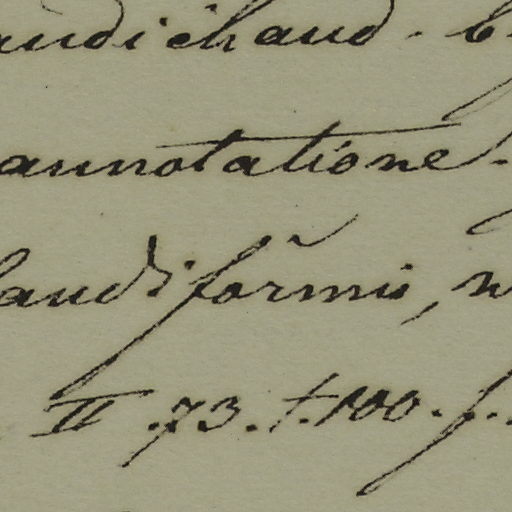 audichaud. b
annotatione.
landiformis, n
II. 73. t. 100. f.